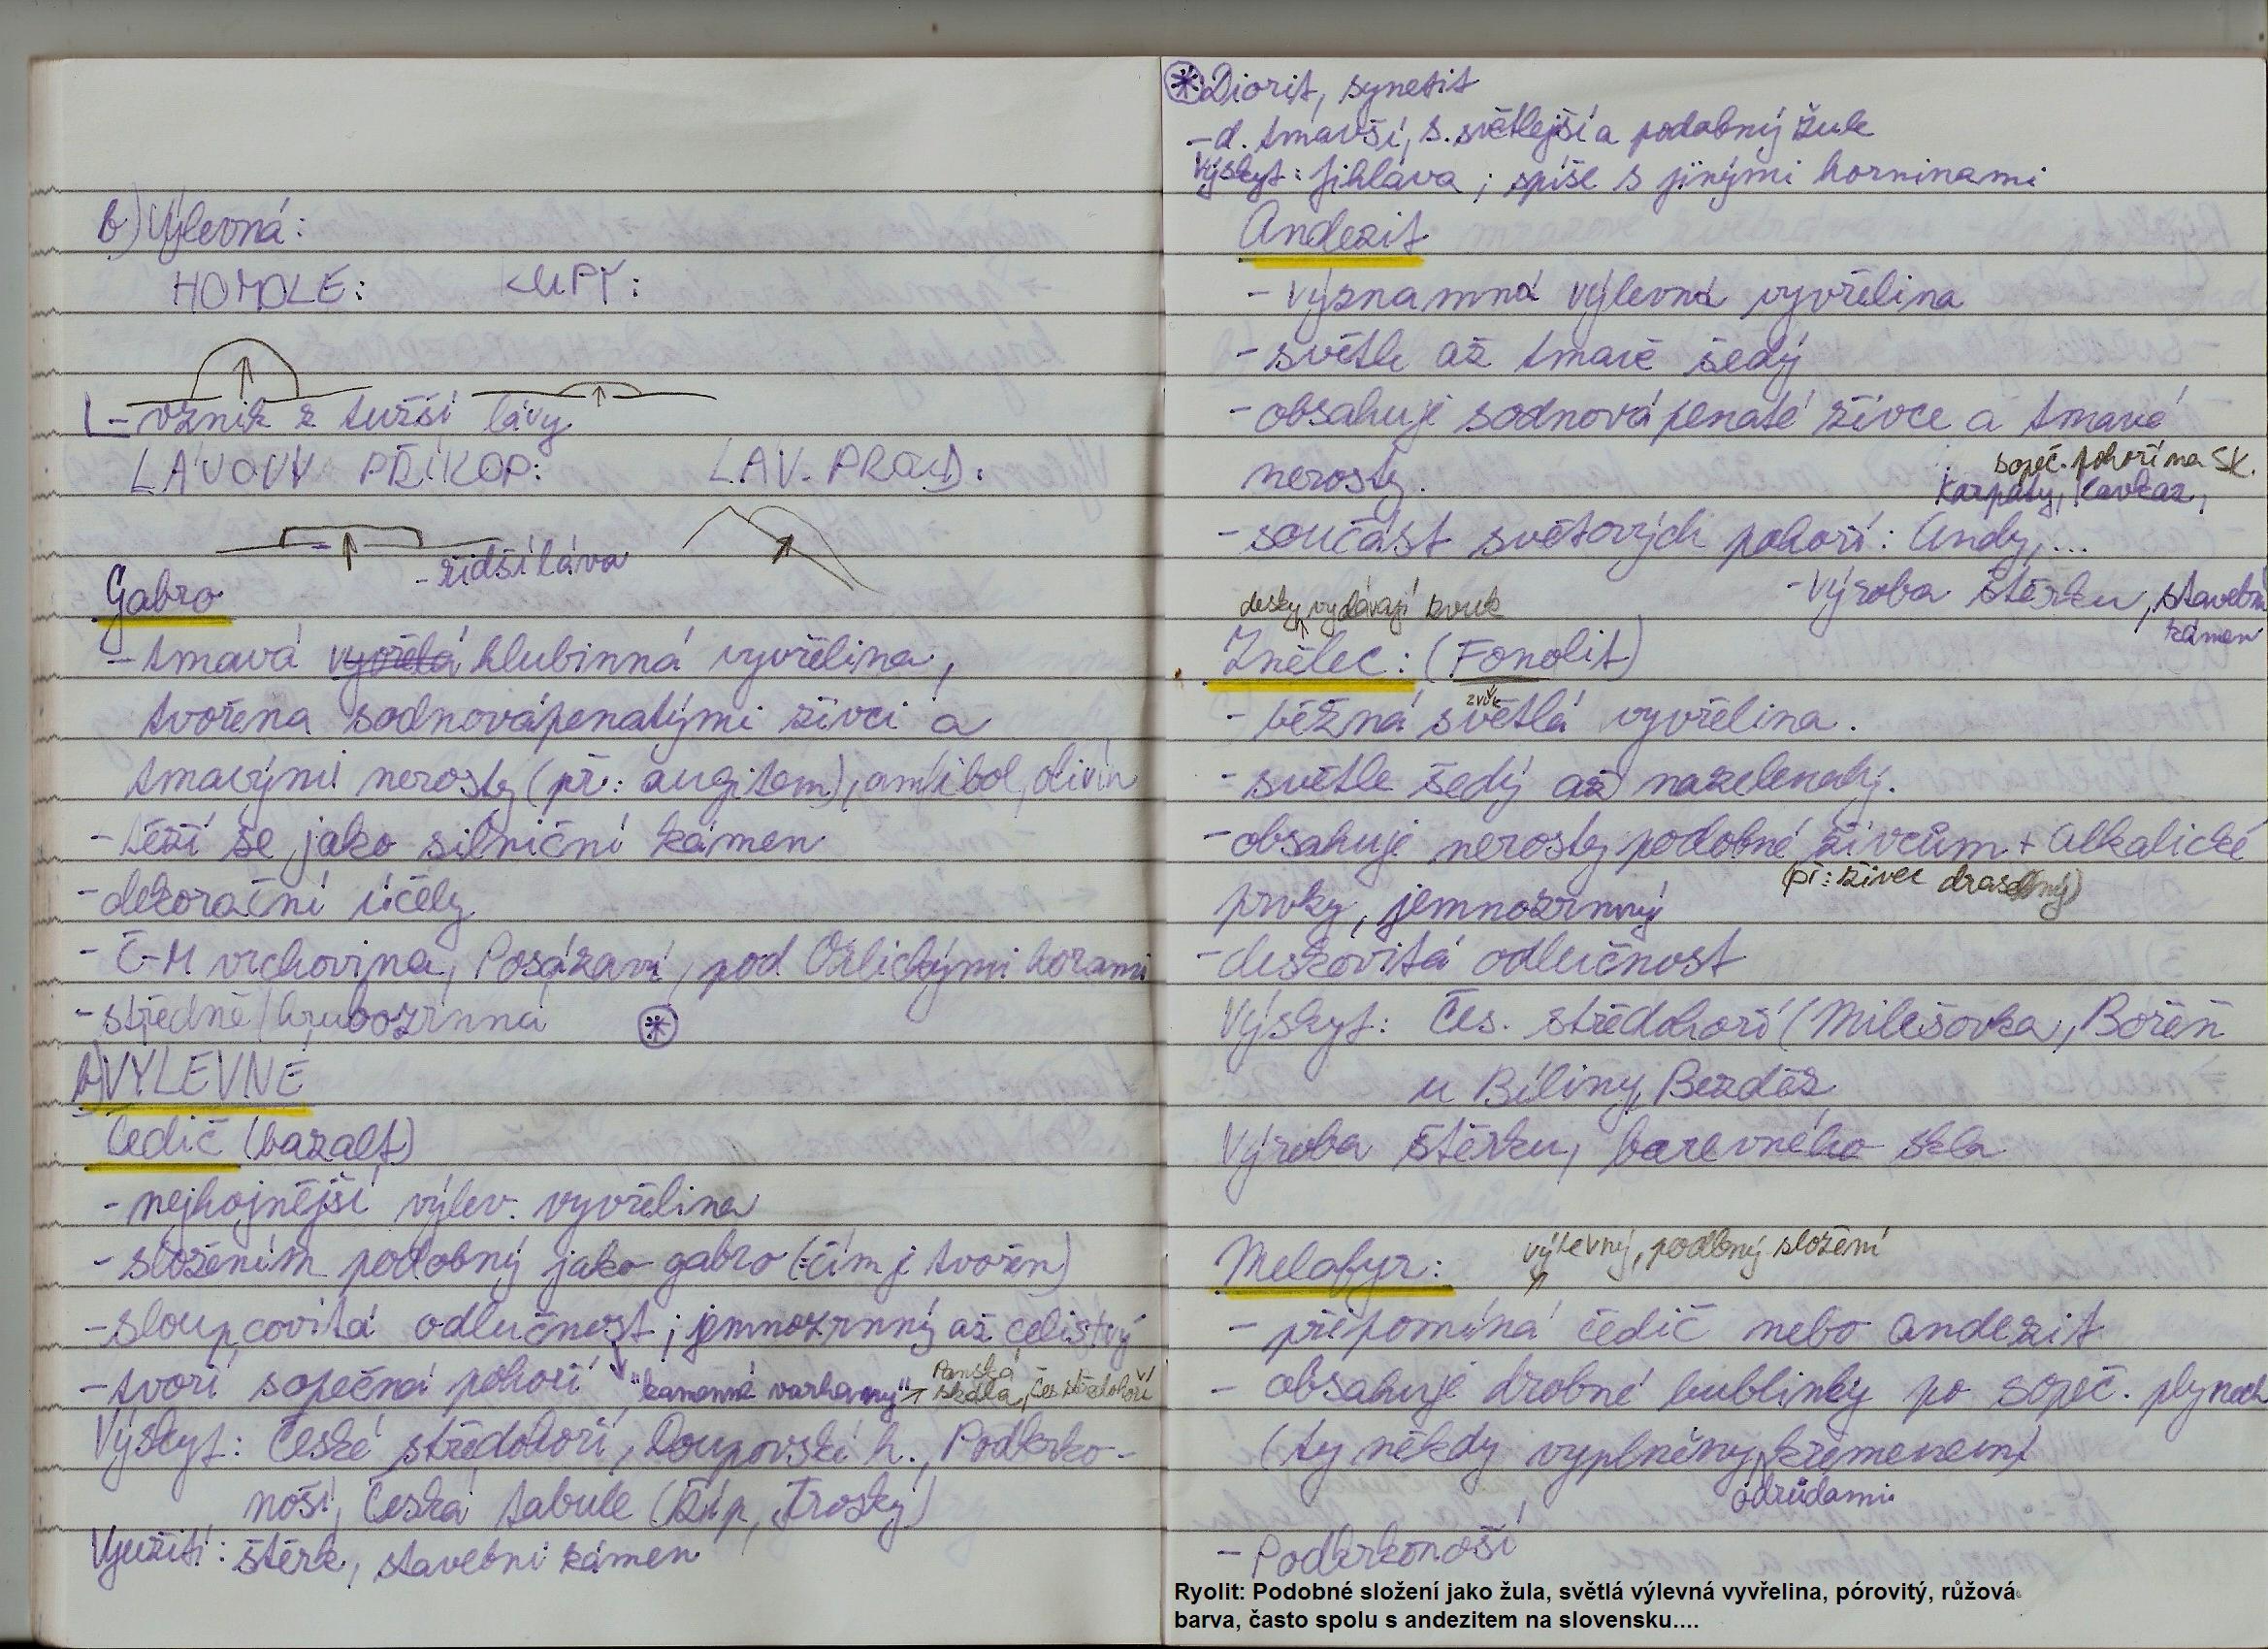 b) Výlevná:
HOMOLE: KUPY:
- vznik z tužší lávy
LÁVOVÝ PŘÍKOP: LÁV. PROUD:
- řidší láva
Gabro
- tmavá vyvřelá hlubinná vyvřelina,
tvořena sodnovápenatými živci a
tmavými nerosty (př.: augitem), amfibol, olivín
- těží se jako silniční kámen
- dekorační účely
- Č-M vrchovina, Posázaví, pod Orlickými horami
- středně/hrubozrnná *
b) VÝLEVNÉ
Čedič (bazalt)
- nejhojnější výlev. vyvřelina
- složením podobný jako gabro (čím j tvořen)
- sloupcovitá odlučnost; jemnozrnný až celistvý
- tvoří sopečná pohoří "kamenné varhany" → Panská skála, Čes středohoří
Výskyt: České středohoří, Doupovské h., Podkrko-
noší, Česká tabule (Říp, Trosky)
Využití: štěrk, stavební kámen
* Diorit, synetit
- d. tmavší, s. světlejší a podobný žule
Výskyt: Jihlava; spíše s jinými horninami
Andezit
- významná výlevná vyvřelina
- světle až tmavě šedý
- obsahuje sodnovápenaté živce a tmavé
nerosty.
sopeč. pohoří na SK.
Karpaty, Kavkaz,
- součást světových pohoří: Andy,...
- výroba štěrku, stavební
kámen
desky vydávají zvuk
Znělec: (Fonolit)
zvuk
- běžná světlá vyvřelina.
- světle šedý až nazelenalý.
- obsahuje nerosty podobné živcům + alkalické
(př.: živec draselný)
prvky, jemnozrnný
- deskovitá odlučnost
Výskyt: Čes. středohoří (Milešovka, Bořeň
u Bíliny, Bezděz
Výroba štěrku, barevného skla
výlevný, podobný složení
Melafyr:
- připomíná čedič nebo andezit
- obsahuje drobné bublinky po sopeč. plynech
(ty někdy vyplněny křemenem)
odrůdami
- Podkrkonoší
Ryolit: Podobné složení jako žula, světlá výlevná vyvřelina, pórovitý, růžová
barva, často spolu s andezitem na slovensku....